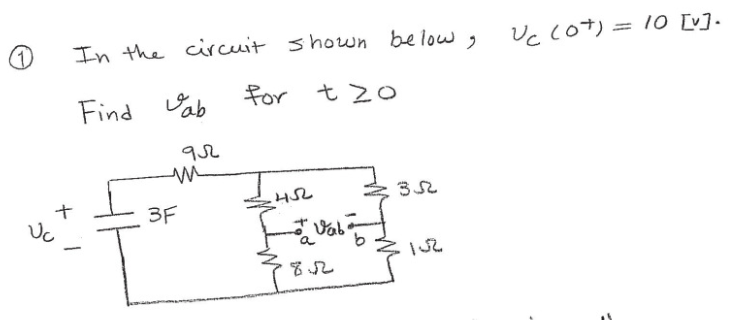 ① In the circuit shown below, Vc(0+) = 10 [V].
Find Vab for t ≥ 0
9Ω
+
Vc
−
3F
4Ω
3Ω
+ Vab −
a b
8Ω
1Ω